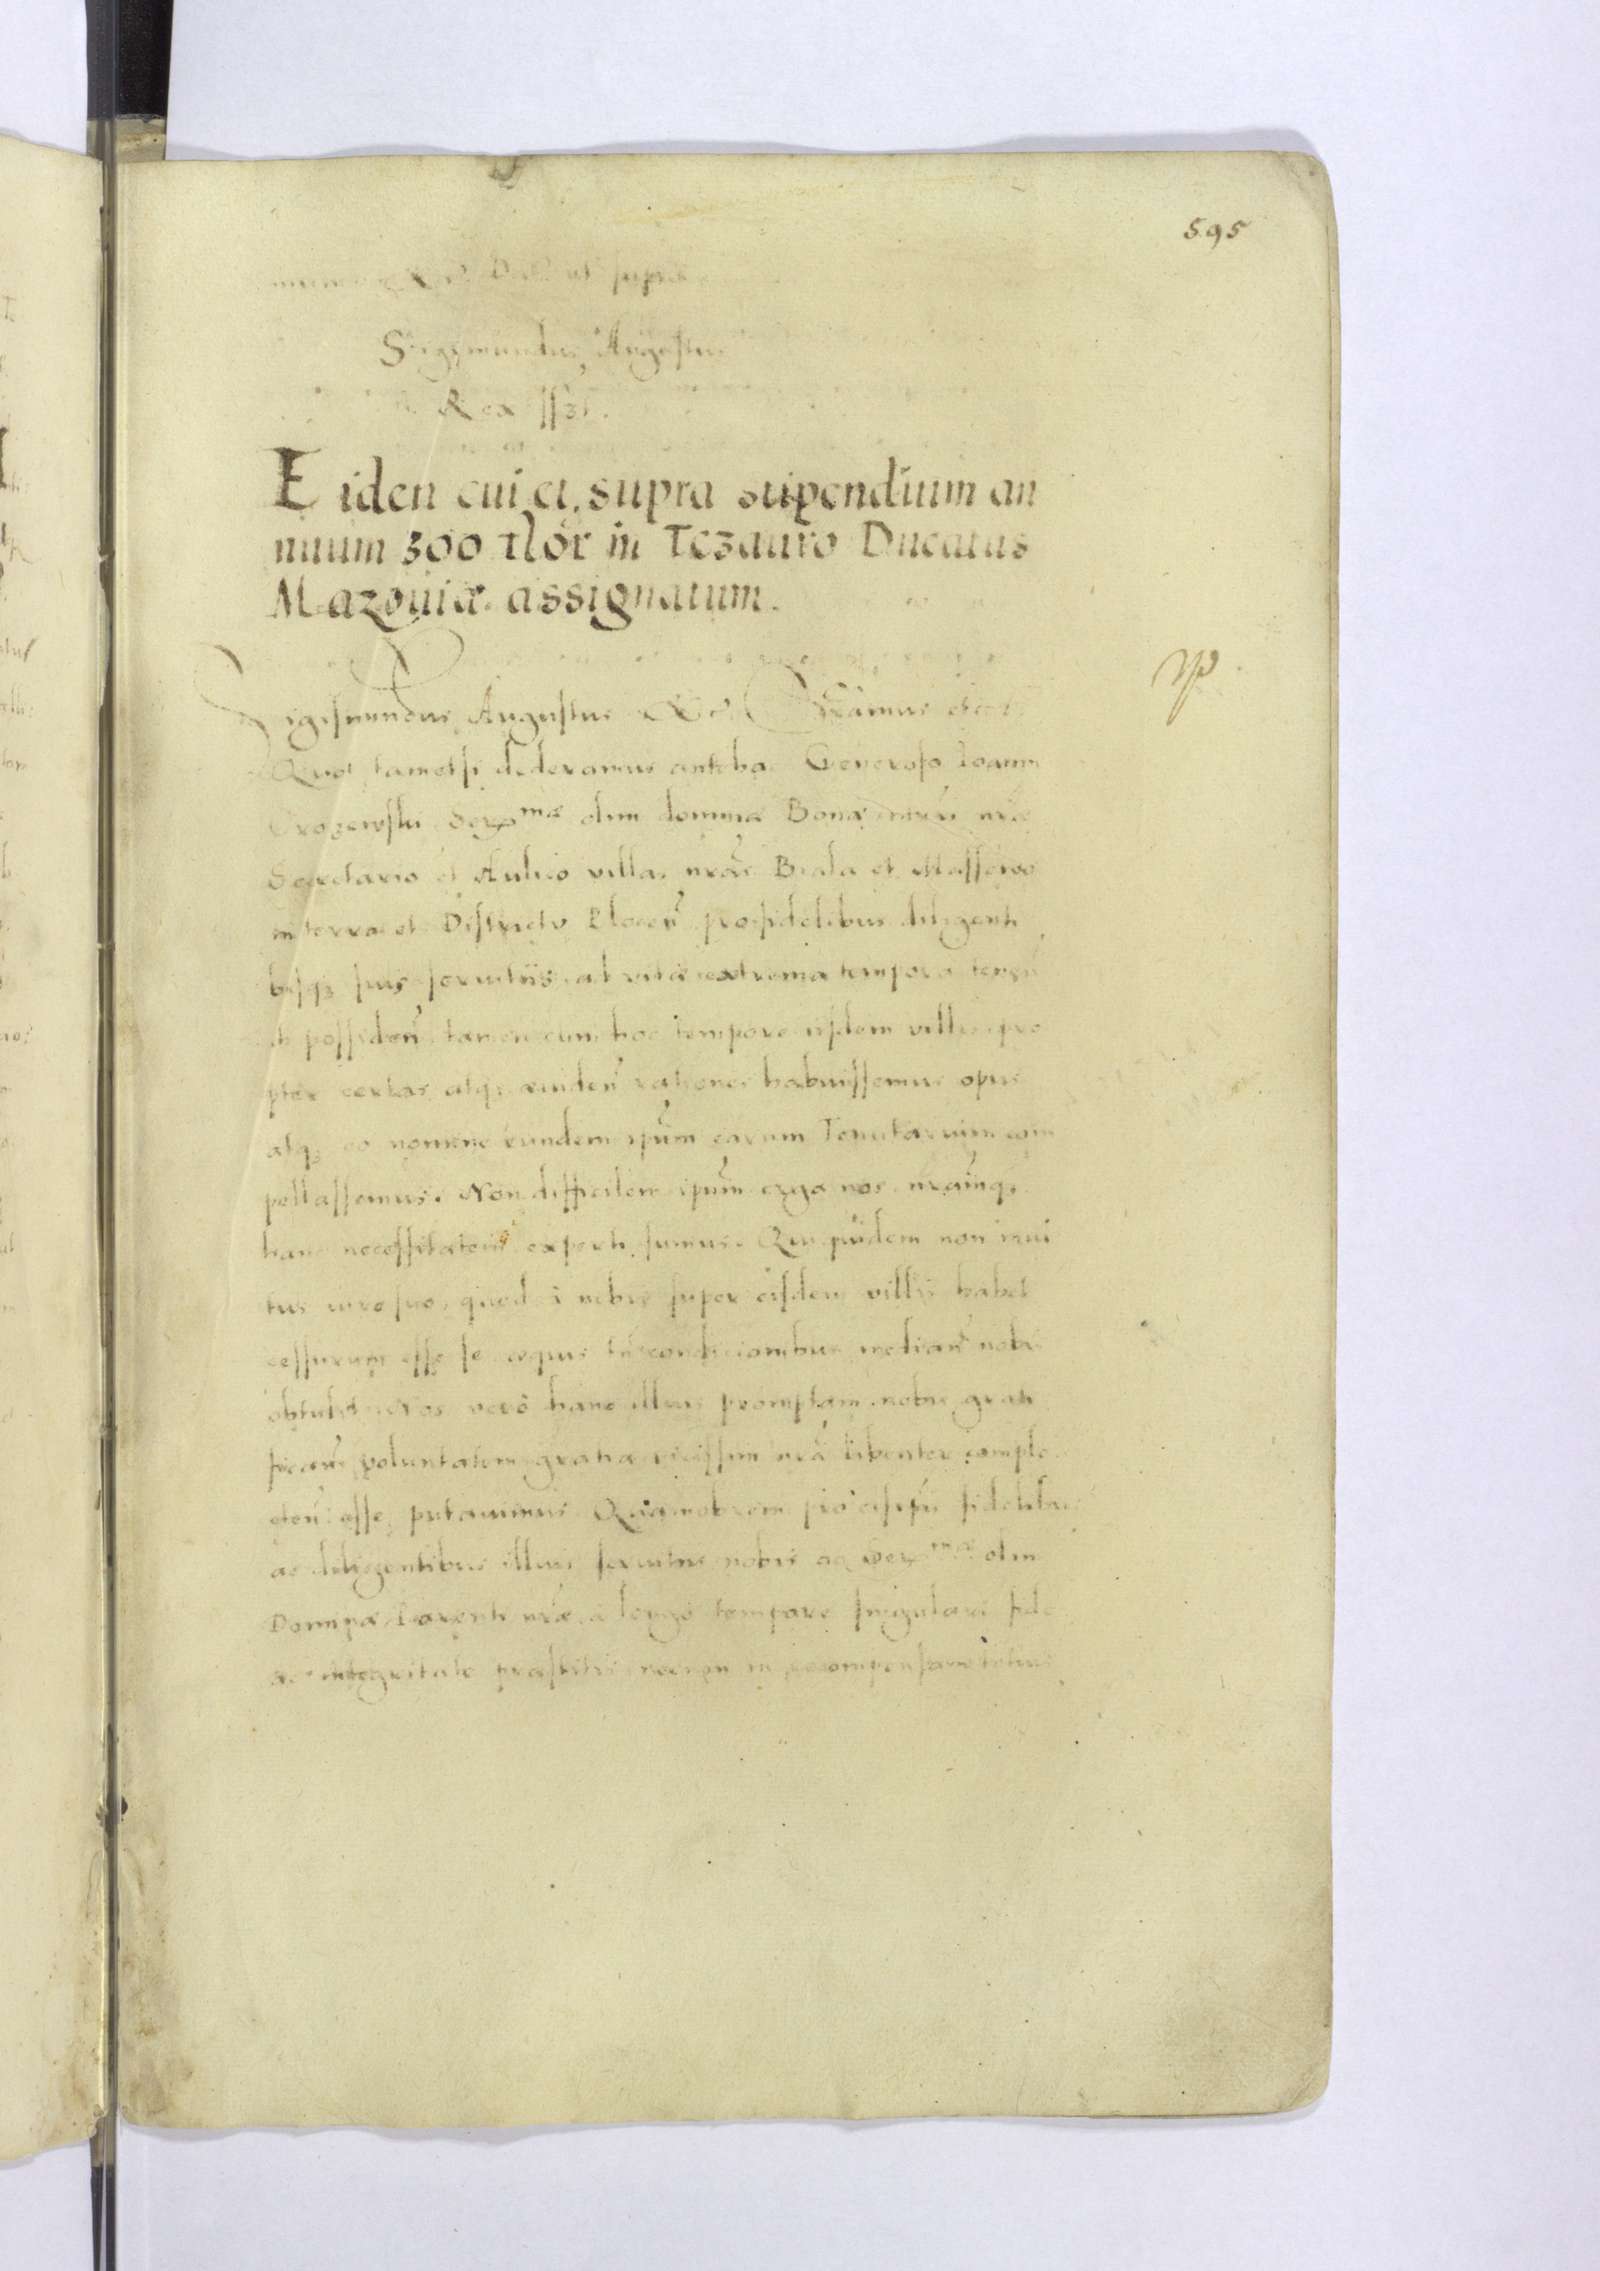 595
ut supra
Sigismundus Augustus
Rex sszt.
Eidem cui et supra stipendium an
nuum 300 flor in Tezauro Ducatus
Mazoviæ assignatum.
Sigismundus Augustus Rex etc
Quod tametsi dederamus antehac Generoso Ioanni
Ser^mæ olim dominæ Bonæ nræ
Secretario et Aulico villas nras Biala et
in terra et Districtu Plocen pro fidelibus diligenti
busq3 suis servitiis ad vitæ extrema tempora
possiden tamen cum hoc tempore iisdem villis pro
pter certas atq3 eviden rationes habuissemus opus
atq3 eo nomine eundem ipum earum Tenutarium com
pellassemus. Non difficilem ipum erga nos nramq3
hanc necessitatem experti sumus. Qui quidem non invi
tus iure suo, quod a nobis super eisdem villis habet
cessurum esse se æquis conditionibus median nobis
obtulit Nos vero hanc illius promptam nobis grati
fican voluntatem gratia vicissim nra libenter comple
cten esse putavimus Quamobrem pro fidelibus
ac diligentibus illius servitiis nobis ac Ser^mæ olim
Dominæ Parenti nræ a longo tempore singulari fide
ac integritate præstitis necnon in